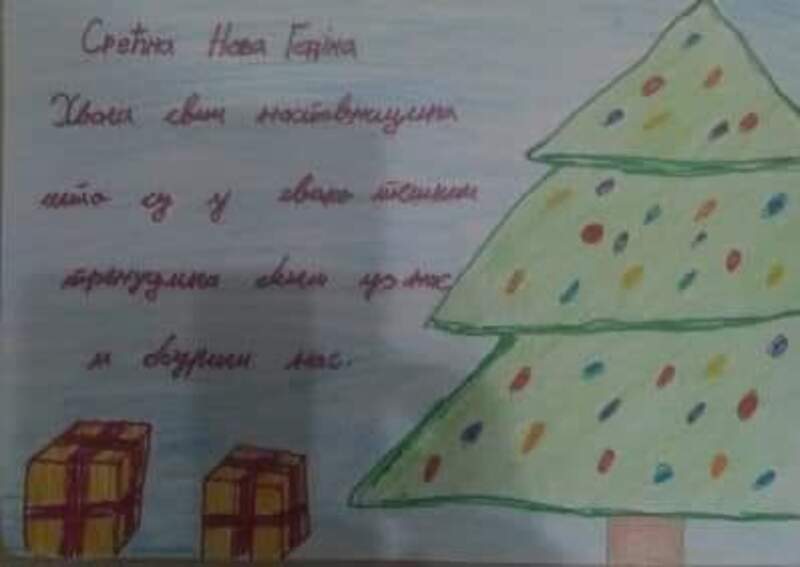 Срећна Нова Година
Хвала свим наставницима
што су у овако тешким
тренуцима били уз нас
и бодрили нас.